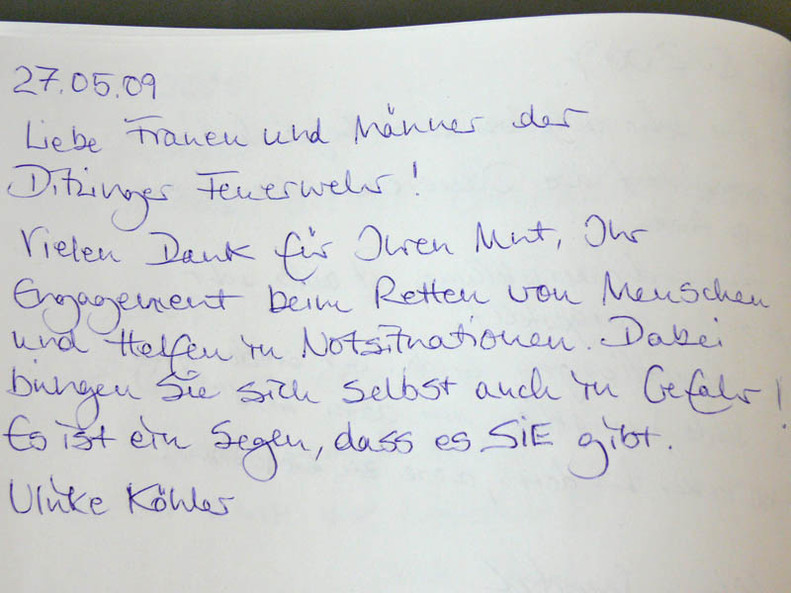 27.05.09
Liebe Frauen und Männer der
Ditzinger Feuerwehr!
Vielen Dank für Ihren Mut, Ihr
Engagement beim Retten von Menschen
und Helfen in Notsituationen. Dabei
bringen Sie sich selbst auch in Gefahr!
Es ist ein Segen, dass es SIE gibt.
Ulrike Köhler